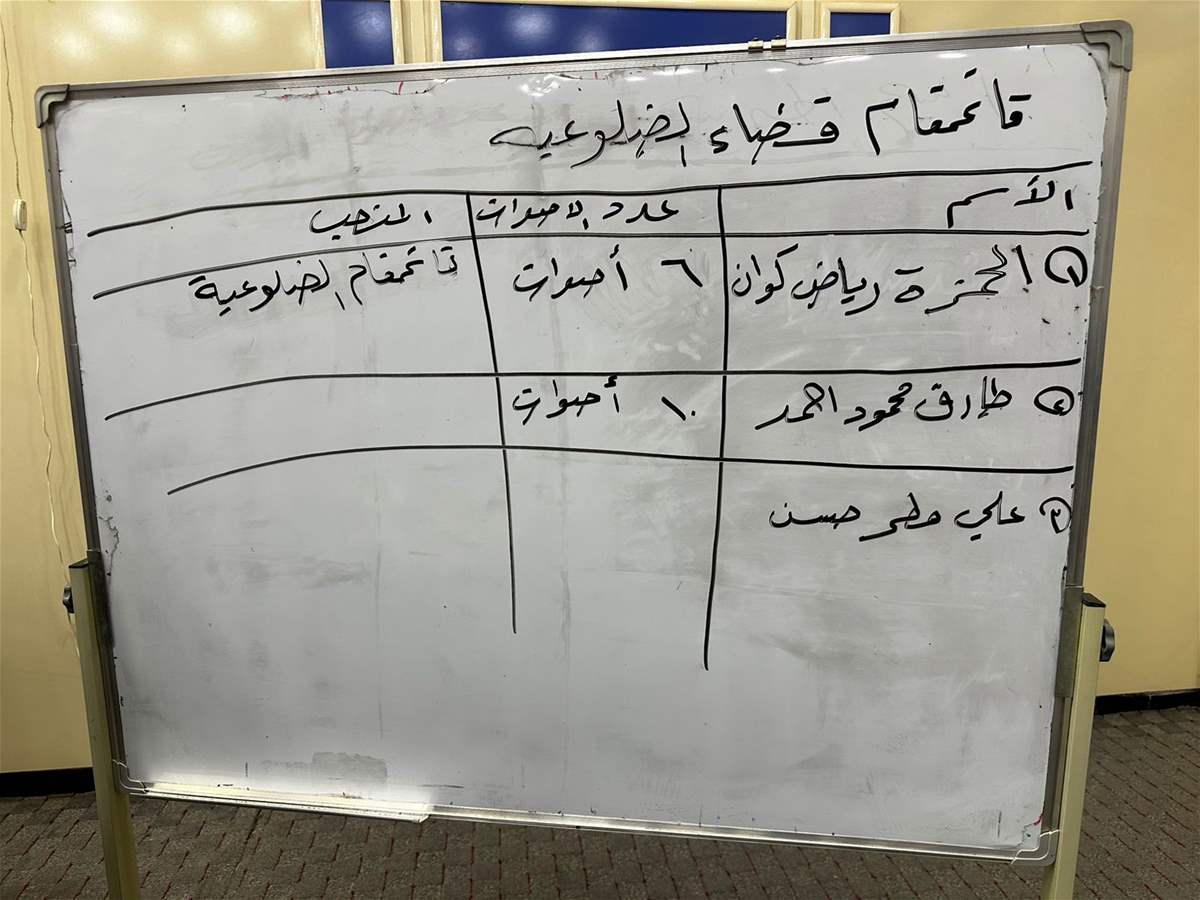 قائمقام قضاء الضلوعيه
الأسم عدد الاصوات المنصب
١ الحمزة رياض كوان ٦ أصوات قائممقام الضلوعية
٢ طارق محمود احمد ١٠ أصوات
٣ علي مطر حسن